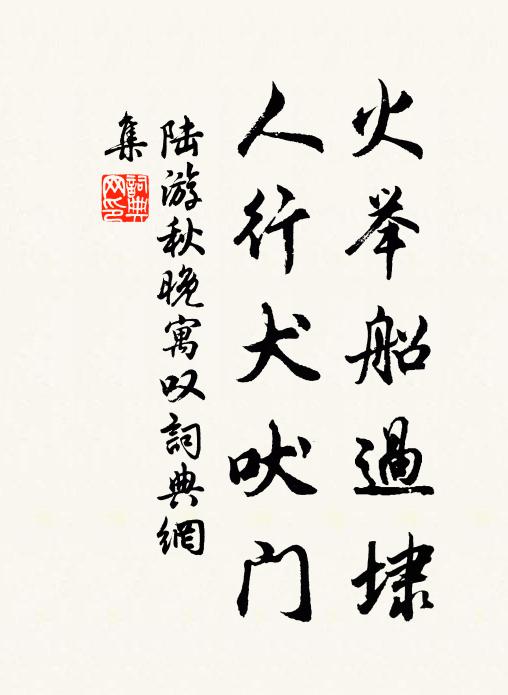 火举船過埭
人行犬吠门
陆游秋晚寓叹詞典網
集
詞典网印